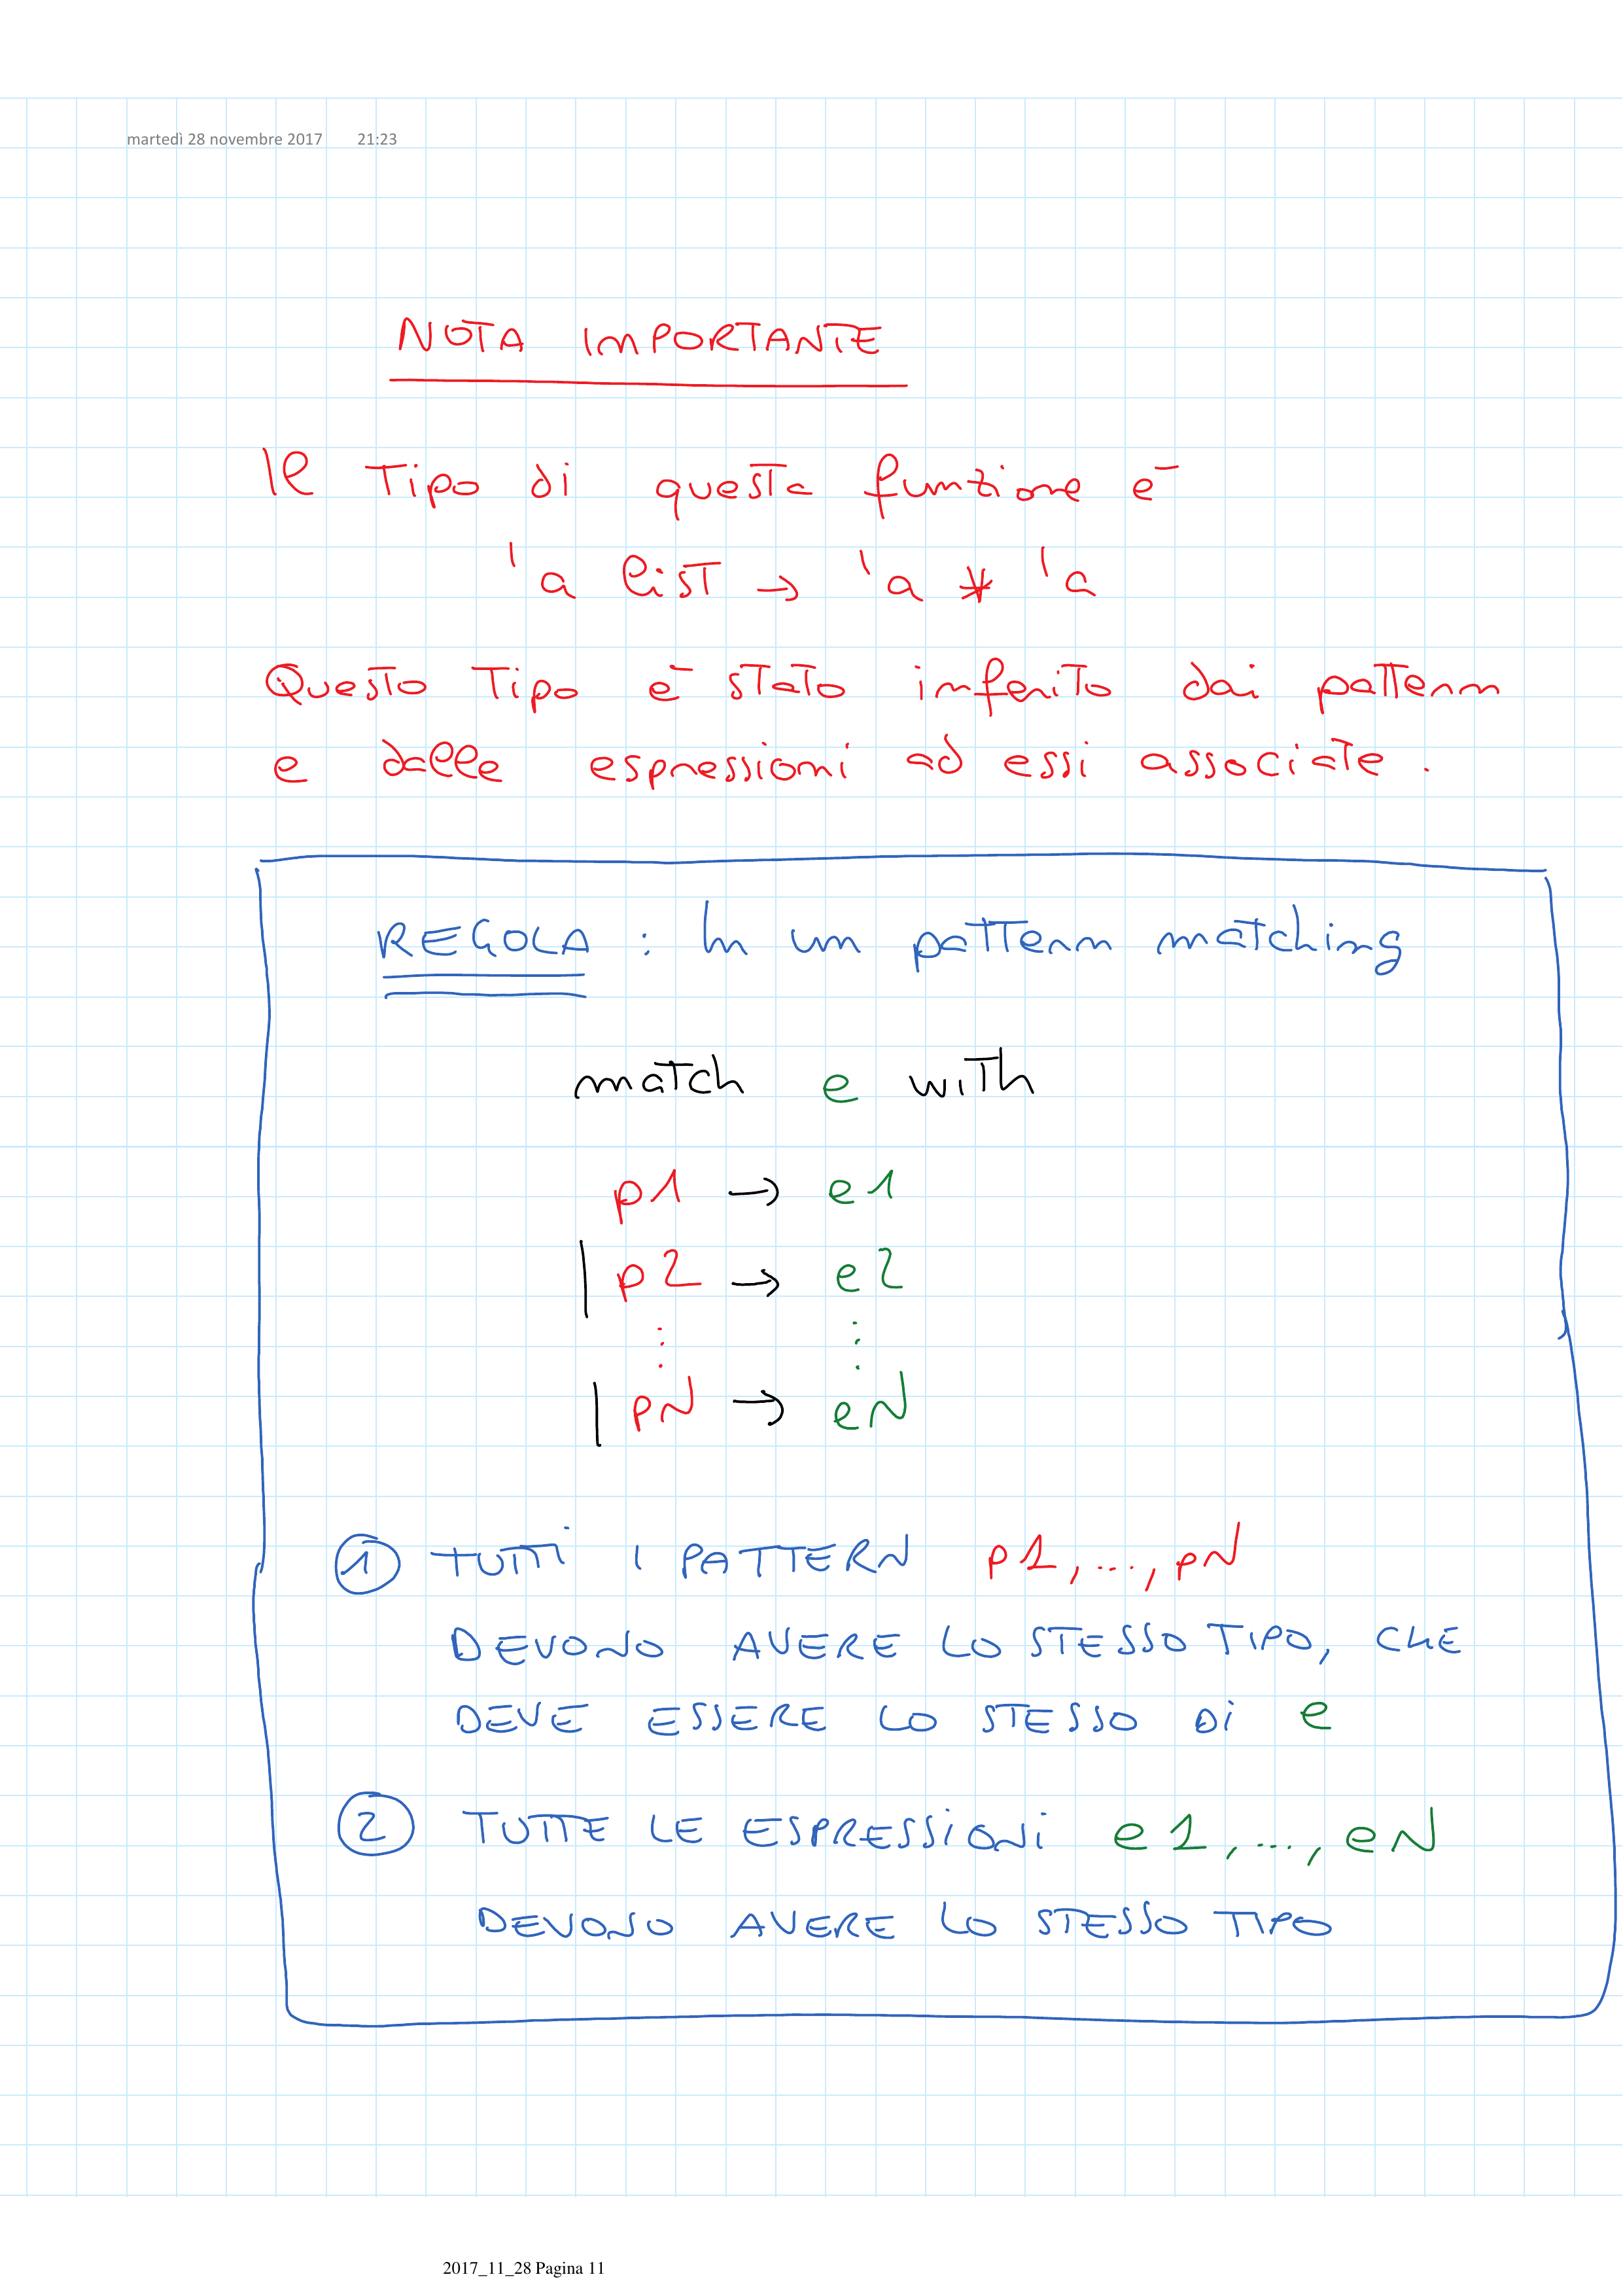 martedì 28 novembre 2017 21:23
NOTA IMPORTANTE
Il tipo di questa funzione è
'a list → 'a * 'a
Questo tipo è stato inferito dai pattern
e dalle espressioni ad essi associate.
REGOLA : In un pattern matching
match e with
p1 → e1
| p2 → e2
⋮ ⋮
| pN → eN
① TUTTI I PATTERN p1,...,pN
DEVONO AVERE LO STESSO TIPO, CHE
DEVE ESSERE LO STESSO DI e
② TUTTE LE ESPRESSIONI e1,...,eN
DEVONO AVERE LO STESSO TIPO
2017_11_28 Pagina 11